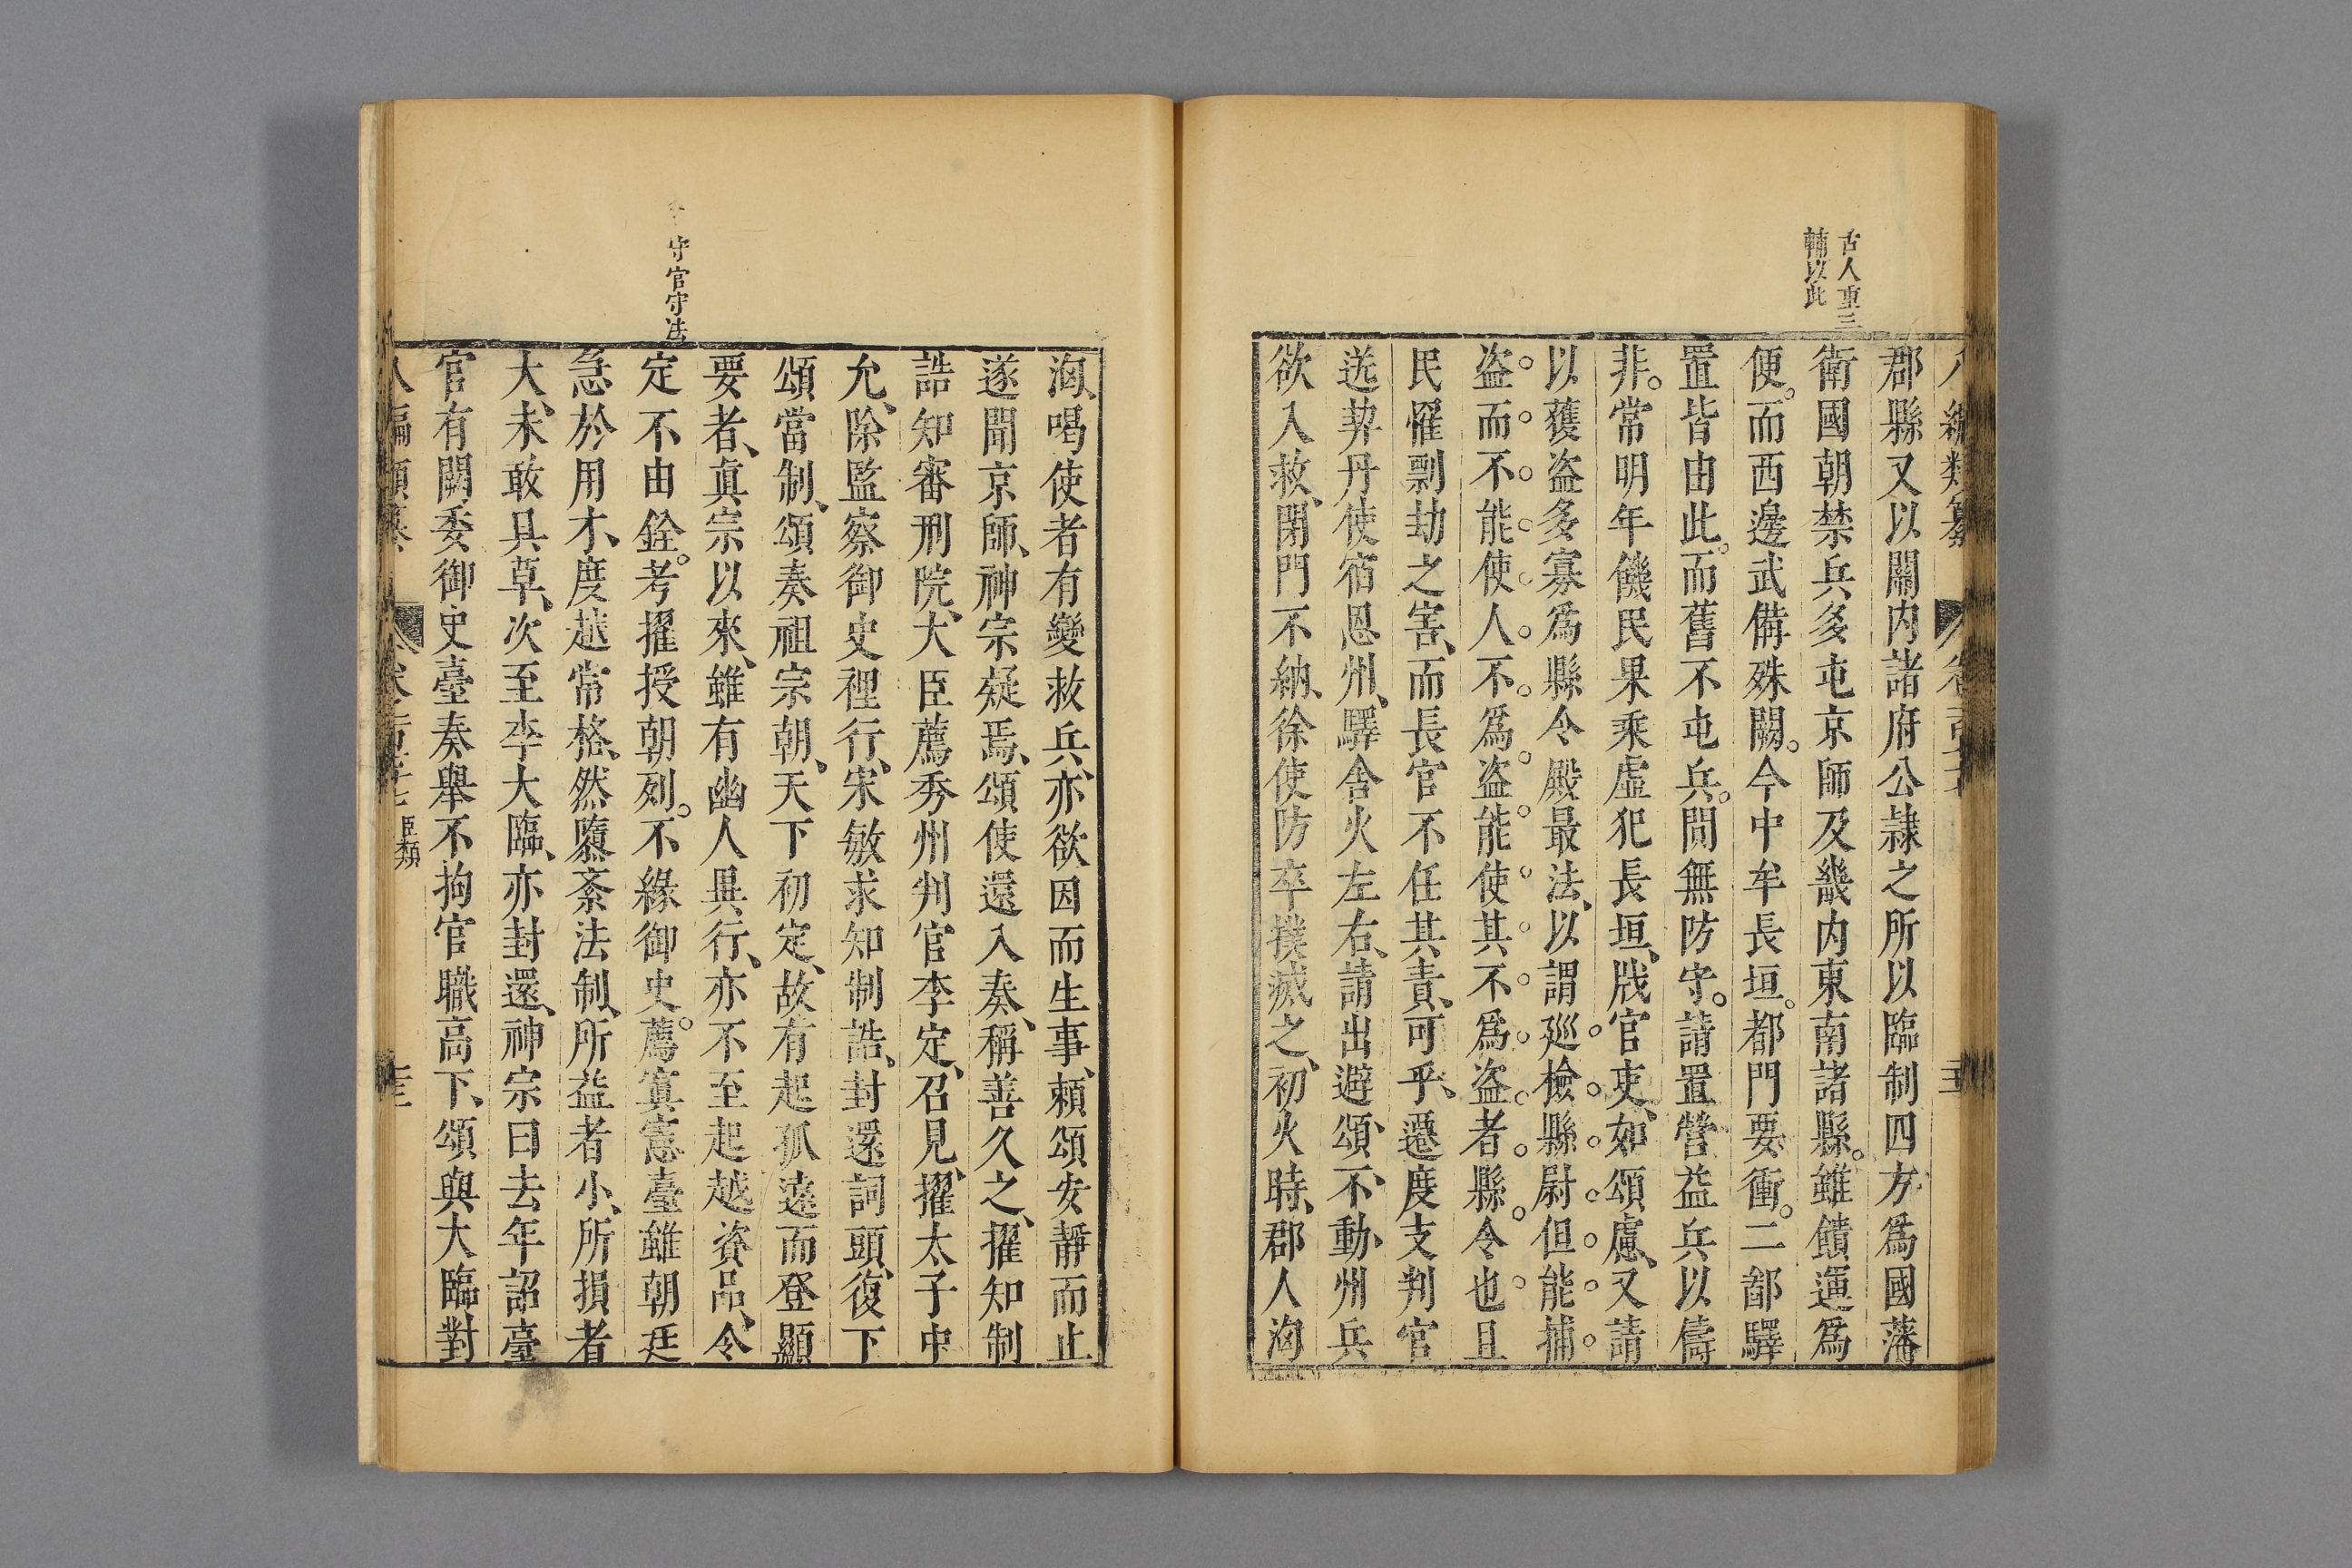 古人重三
輔以此
八編類纂
郡縣又以關内諸府公隷之所以臨制四方爲國藩
衛國朝禁兵多屯京師及畿内東南諸縣。雖饋運爲
便。而西邊武備殊闕。今中牟長垣。都門要衝。二鄙驛
置皆由此。而舊不屯兵。閒無防守。請置營益兵以儔
非。常明年饑民果乘虛犯長垣、戕官吏、如頌慮、又請
以獲盜多寡爲縣令殿最法、以謂廵檢縣尉但能捕
盜而不能使人不爲盜能使其不爲盜者縣令也且
民罹剽劫之害、而長官不任其責、可乎、遷度支判官
送契丹使宿恩州、驛舍火左右、請出避頌、不、動、州兵
欲入救、閉門不納、徐使防卒撲滅之、初火時、郡人洶
守官守法
洶、喝使者有變救兵、亦欲因而生事、頼頌安靜而止
遂聞京師、神宗疑焉、頌使還入奏、稱善久之、擢知制
誥知審刑院、大臣薦秀州判官李定、召見、擢太子中
允、除監察御史裡行、宋敏求知制誥、封還詞頭、復下
頌當制、頌奏祖宗朝、天下初定、故有起孤遠而登顯
要者、眞宗以來、雖有幽人異行、亦不至起越資品、今
定不由銓。考擢授朝列。不緣御史。薦寘憲臺雖朝廷
急於用才、度越常格、然隳紊法制、所益者小、所損者
大、未敢具草、次至李大臨、亦封還、神宗曰去年詔臺
官有闕委御史臺奏舉不拘官職高下、頌與大臨對
臣類